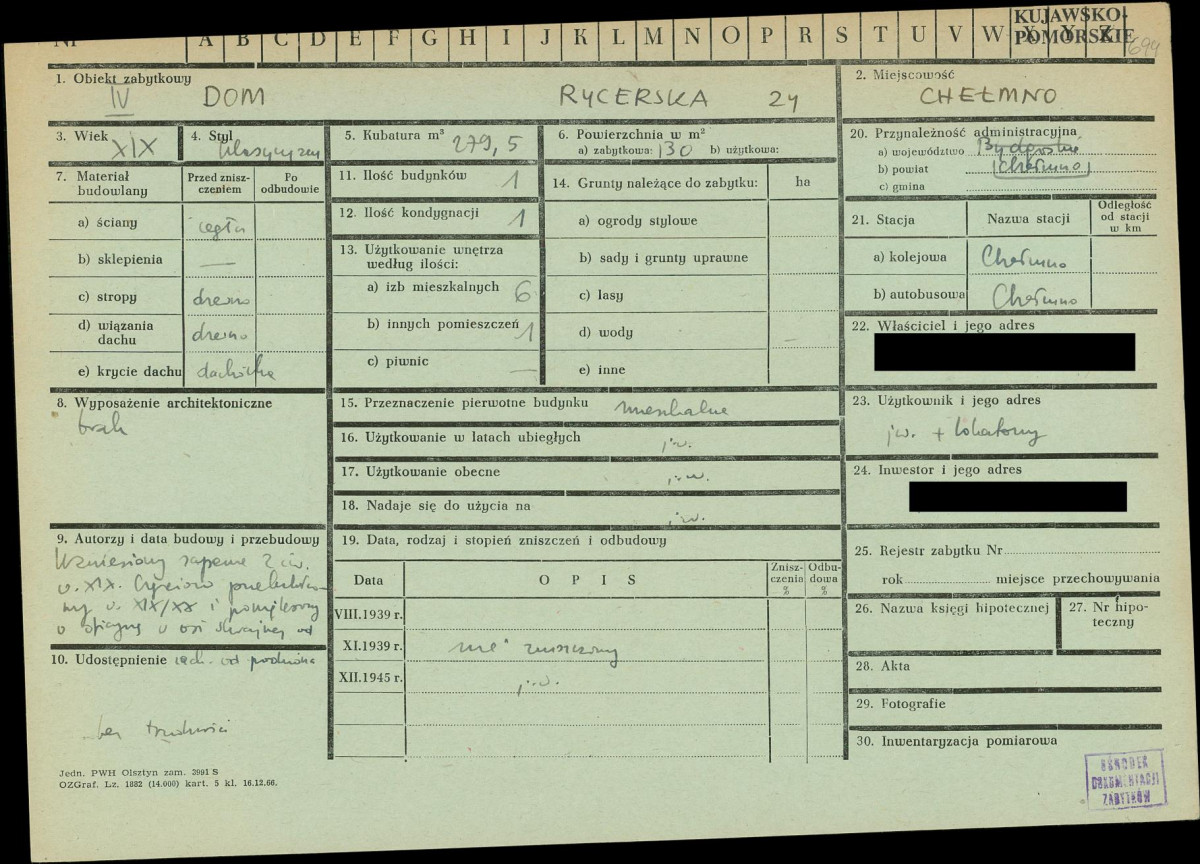 Nr A B C D E F G H I J K L M N O P R S T U V W X Y Z
KUJAWSKO-
POMORSKIE
694
1. Obiekt zabytkowy
IV DOM RYCERSKA 24
2. Miejscowość
CHEŁMNO
3. Wiek XIX
4. Styl klasycyzm
5. Kubatura m³ 279,5
6. Powierzchnia w m²
a) zabytkowa: 130 b) użytkowa:
7. Materiał budowlany
Przed zniszczeniem
Po odbudowie
a) ściany cegła
b) sklepienia —
c) stropy drewno
d) wiązania dachu drewno
e) krycie dachu dachówka
8. Wyposażenie architektoniczne
brak
9. Autorzy i data budowy i przebudowy
Wzniesiony zapewne 2 ćw.
w. XIX. Częściowo
w. XIX/XX i
o oficynę w osi skrajnej od
10. Udostępnienie zach. od podwórza
bez trudności
11. Ilość budynków 1
12. Ilość kondygnacji 1
13. Użytkowanie wnętrza według ilości:
a) izb mieszkalnych 6
b) innych pomieszczeń 1
c) piwnic —
14. Grunty należące do zabytku: ha
a) ogrody stylowe
b) sady i grunty uprawne
c) lasy
d) wody —
e) inne
15. Przeznaczenie pierwotne budynku mieszkalne
16. Użytkowanie w latach ubiegłych j.w.
17. Użytkowanie obecne j.w.
18. Nadaje się do użycia na j.w.
19. Data, rodzaj i stopień zniszczeń i odbudowy
Data OPIS Zniszczenia % Odbudowa %
VIII.1939 r.
XI.1939 r. nie zniszczony
XII.1945 r. j.w.
20. Przynależność administracyjna
a) województwo Bydgoskie
b) powiat (Chełmno)
c) gmina
21. Stacja Nazwa stacji Odległość od stacji w km
a) kolejowa Chełmno
b) autobusowa Chełmno
22. Właściciel i jego adres
23. Użytkownik i jego adres
j.w. + lokatorzy
24. Inwestor i jego adres
25. Rejestr zabytku Nr
rok miejsce przechowywania
26. Nazwa księgi hipotecznej
27. Nr hipoteczny
28. Akta
29. Fotografie
30. Inwentaryzacja pomiarowa
OŚRODEK
DOKUMENTACJI
ZABYTKÓW
Jedn. PWH Olsztyn zam. 3991 S
OZGraf. Lz. 1882 (14.000) kart. 5 kl. 16.12.66.